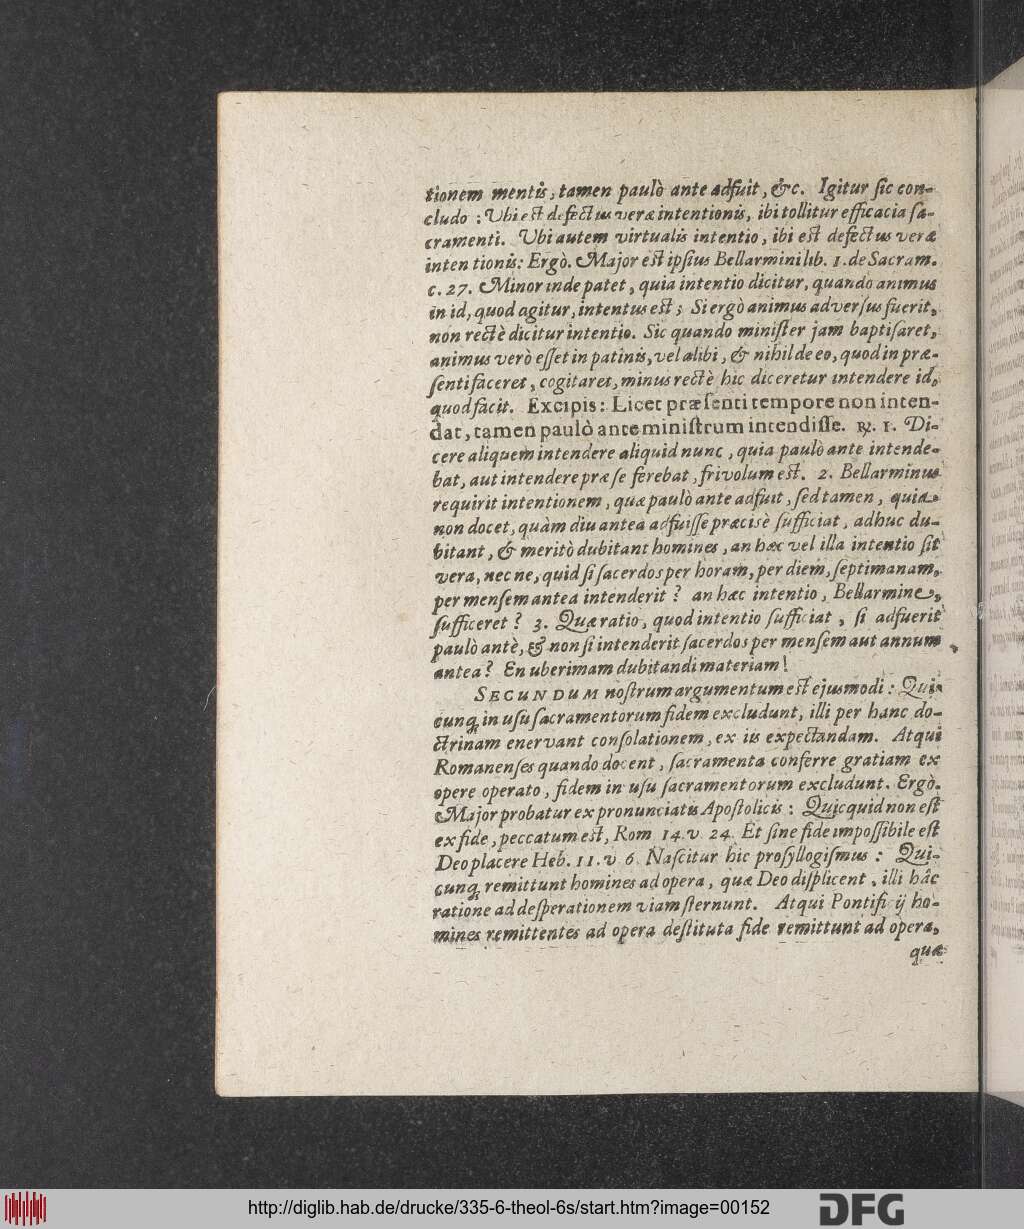 tionem mentis, tamen paulò ante adfuit, &c. Igitur ſic con-
cludo: Ubi eſt defectus veræ intentionis, ibi tollitur efficacia ſa-
cramenti. Ubi autem virtualis intentio, ibi eſt defectus veræ
intentionis: Ergò. Major eſt ipſius Bellarmini lib. 1. de Sacram.
c. 27. Minor inde patet, quia intentio dicitur, quando animus
in id, quod agitur, intentus eſt; Si ergò animus adverſus fuerit,
non rectè dicitur intentio. Sic quando miniſter jam baptiſaret,
animus verò eſſet in patinis, vel alibi, & nihil de eo, quod in præ-
ſenti faceret, cogitaret, minus rectè hic diceretur intendere id,
quod facit. Excipis: Licet præſenti tempore non inten-
dat, tamen paulò ante miniſtrum intendiſſe. ℞. 1. Di-
cere aliquem intendere aliquid nunc, quia paulò ante intende-
bat, aut intendere præ ſe ferebat, frivolum eſt. 2. Bellarminus
requirit intentionem, quæ paulò ante adfuit, ſed tamen, quia
non docet, quàm diu antea adfuiſſe præcisè ſufficiat, adhuc du-
bitant, & meritò dubitant homines, an hæc vel illa intentio ſit
vera, nec ne, quid ſi ſacerdos per horam, per diem, ſeptimanam,
per menſem antea intenderit? an hæc intentio, Bellarmine,
ſufficeret? 3. Quæ ratio, quod intentio ſufficiat, ſi adfuerit
paulò antè, & non ſi intenderit ſacerdos per menſem aut annum
antea? En uberimam dubitandi materiam!
SECUNDUM noſtrum argumentum eſt ejusmodi: Qui-
cunq; in uſu ſacramentorum fidem excludunt, illi per hanc do-
ctrinam enervant conſolationem, ex iis expectandam. Atqui
Romanenſes quando docent, ſacramenta conferre gratiam ex
opere operato, fidem in uſu ſacramentorum excludunt. Ergò.
Major probatur ex pronunciatis Apoſtolicis: Quicquid non eſt
ex fide, peccatum eſt, Rom. 14. v. 24. Et ſine fide impoſſibile eſt
Deo placere Heb. 11. v. 6. Naſcitur hic proſyllogiſmus: Qui-
cunq; remittunt homines ad opera, quæ Deo diſplicent, illi hâc
ratione ad deſperationem viam ſternunt. Atqui Pontificij ho-
mines remittentes ad opera deſtituta fide remittunt ad opera,
quæ
http://diglib.hab.de/drucke/335-6-theol-6s/start.htm?image=00152
DFG